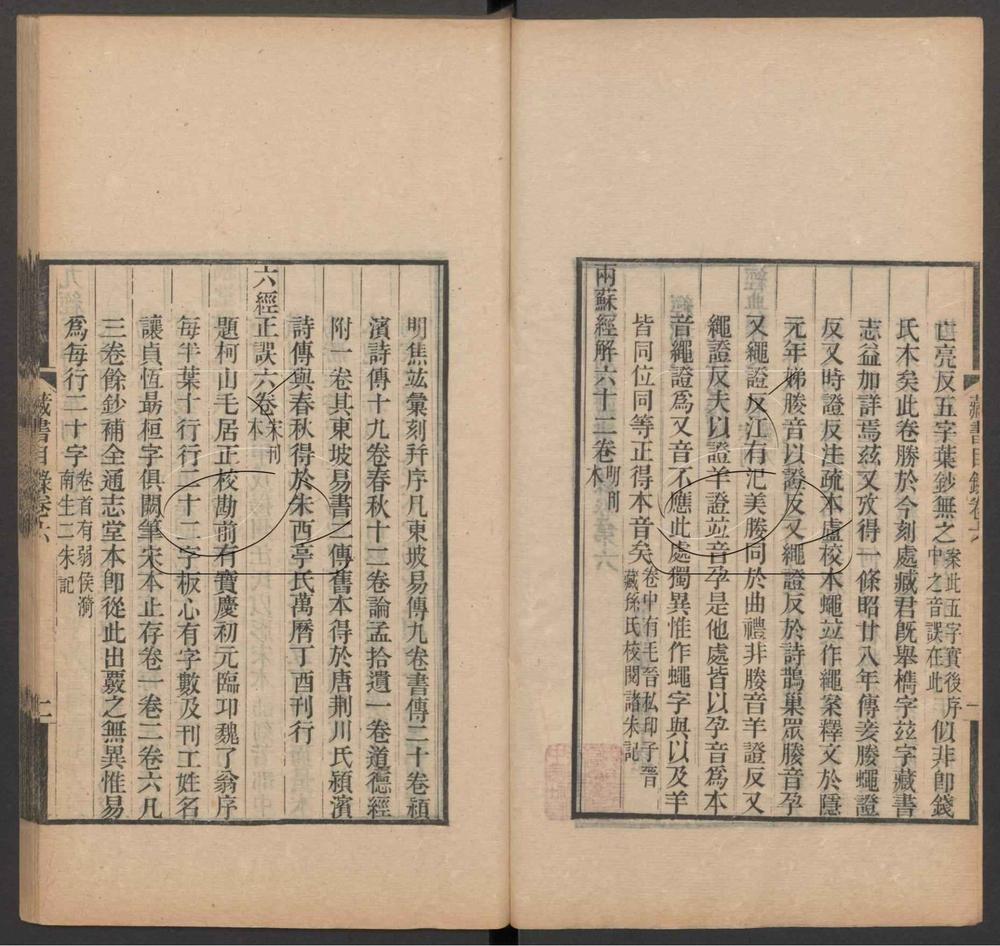 世亮反五字葉鈔無之案此五字實後序中之音誤在此似非卽錢
氏本矣此卷勝於今刻處臧君旣舉檇字竝字藏書
志益加詳焉茲又攷得一條昭廿八年傳妾媵蠅證
反又時證反注疏本盧校本蠅竝作繩案釋文於隱
元年娣媵音以證反又繩證反於詩鵲巢眾媵音孕
又繩證反江有汜美媵同於曲禮非媵音羊證反又
繩證反夫以證羊證竝音孕是他處皆以孕音爲本
音繩證爲又音不應此處獨異惟作蠅字與以及羊
皆同位同等正得本音矣卷中有毛晉私印子晉藏係氏校閱諸朱記
兩蘇經解六十二卷明刊本
藏書目錄卷六 一
明焦竑彙刻幷序凡東坡易傳九卷書傳二十卷潁
濱詩傳十九卷春秋十二卷論孟拾遺一卷道德經
附一卷其東坡易書之傳舊本得於唐荆川氏潁濱
詩傳與春秋得於朱西亭氏萬曆丁酉刊行
六經正誤六卷宋刊本
題柯山毛居正校勘前有寶慶初元臨卭魏了翁序
每半葉十行行二十二字板心有字數及刊工姓名
讓貞恆勗桓字俱闕筆宋本止存卷一卷二卷六凡
三卷餘鈔補全通志堂本卽從此出覈之無異惟易
爲每行二十字卷首有弱侯漪南生二朱記
藏書目錄卷六 二